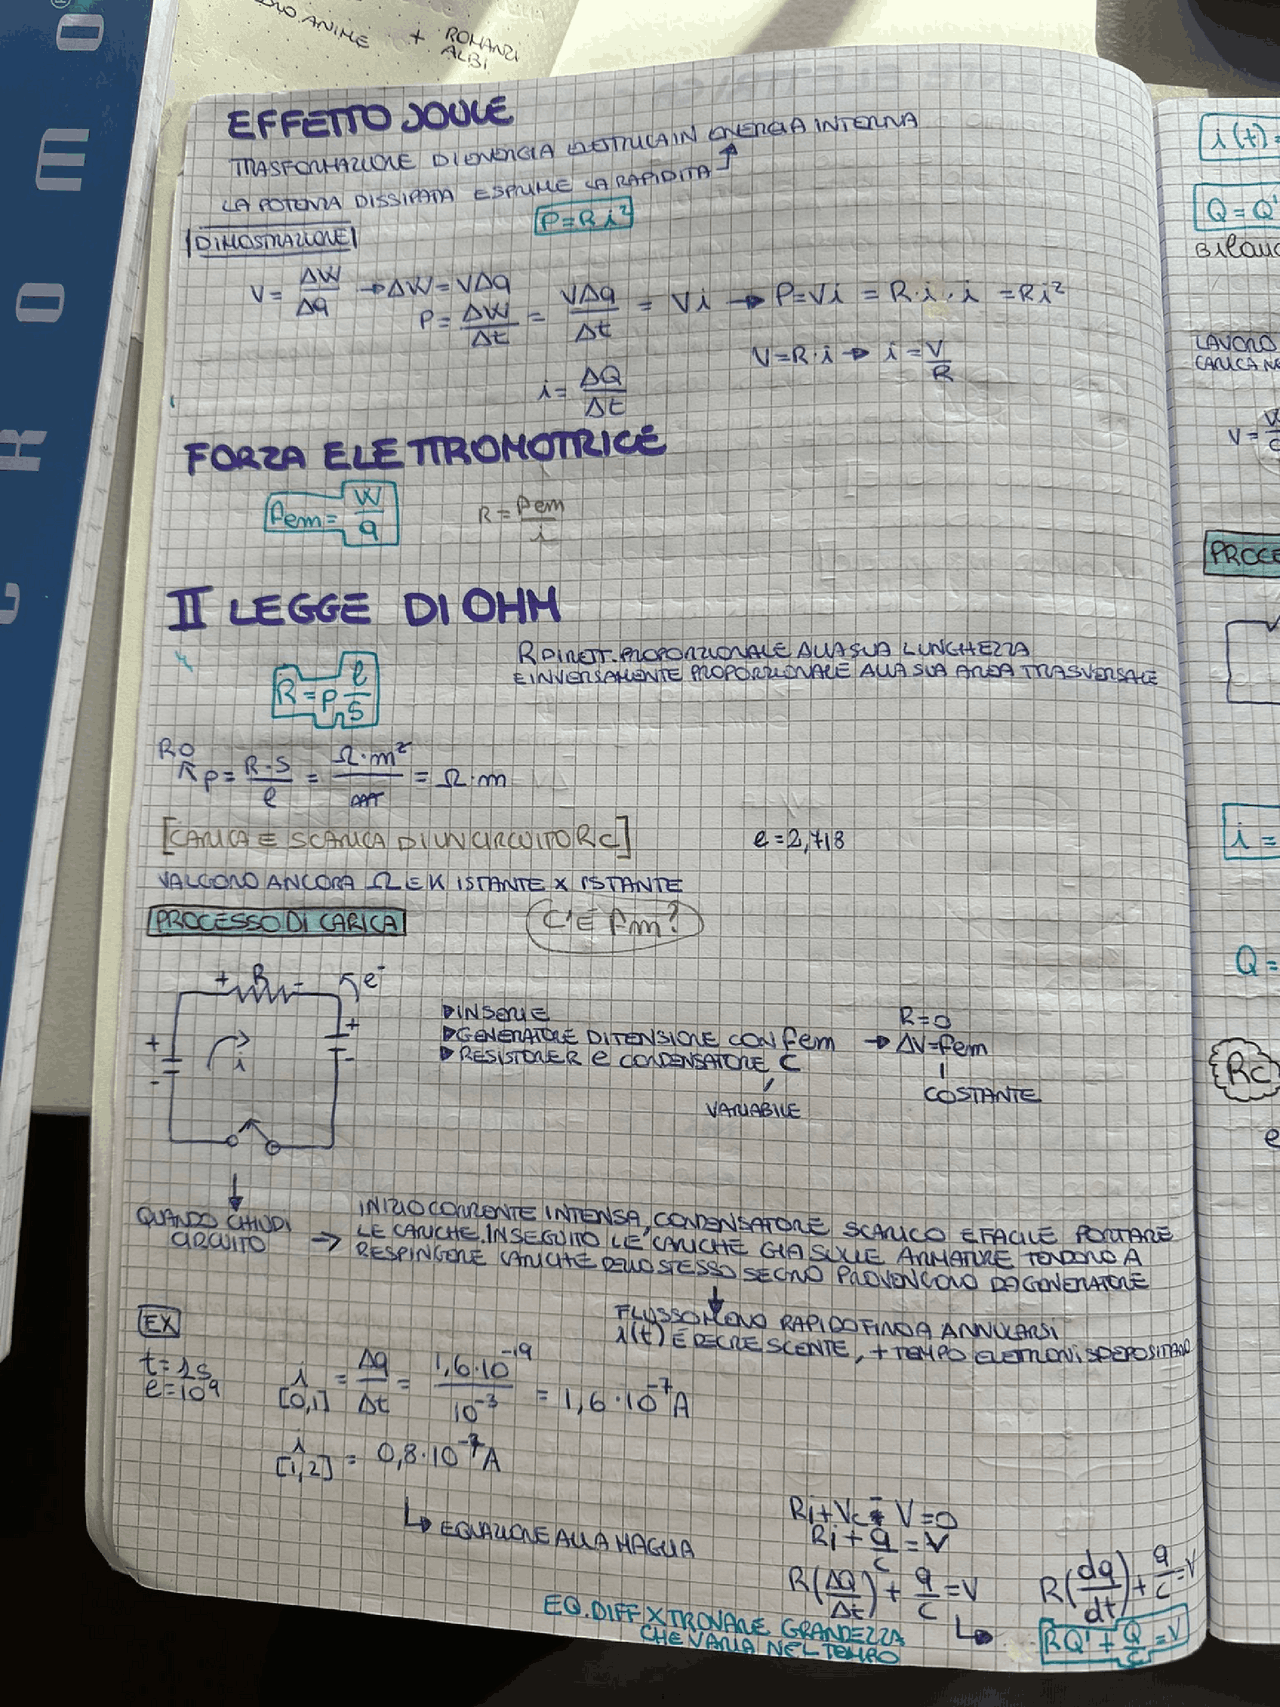 ANIME + ROMANZI
ALBI
EFFETTO JOULE
TRASFORMAZIONE DI ENERGIA ELETTRICA IN ENERGIA INTERNA
LA POTENZA DISSIPATA ESPRIME LA RAPIDITÀ
P=Ri²
DIMOSTRAZIONE
V= ΔW/Δq → ΔW=VΔq
P= ΔW/Δt = VΔq/Δt = Vi → P=Vi = R·i·i = Ri²
V=R·i → i=V/R
i= ΔQ/Δt
FORZA ELETTROMOTRICE
fem= W/q
R= fem/i
II LEGGE DI OHM
R=ρ l/S
R DIRETT. PROPORZIONALE ALLA SUA LUNGHEZZA
E INVERSAMENTE PROPORZIONALE ALLA SUA AREA TRASVERSALE
RO
ρ= R·S/l = Ω·m²/m = Ω·m
[CARICA E SCARICA DI UN CIRCUITO RC]
e=2,718
VALGONO ANCORA Ω E K ISTANTE X ISTANTE
PROCESSO DI CARICA
C'È fm?
+ R - e⁻
+ - i + -
IN SERIE
GENERATORE DI TENSIONE CON fem → ΔV=fem
RESISTORE R e CONDENSATORE, C
R=0
COSTANTE
VARIABILE
QUANDO CHIUDI
CIRCUITO
→ INIZIO CORRENTE INTENSA, CONDENSATORE SCARICO E FACILE PORTARE
LE CARICHE. IN SEGUITO LE CARICHE GIA SULLE ARMATURE TENDONO A
RESPINGERE CARICHE DELLO STESSO SEGNO PROVENGONO DA GENERATORE
FLUSSO MENO RAPIDO FINO A ANNULARSI
i(t) È DECRESCENTE, + TEMPO ELETTRONI SI DEPOSITANO
EX
t=1s
e=10⁹
i [0,1] = Δq/Δt = 1,6·10⁻¹⁹/10⁻³ = 1,6·10⁻⁷A
i [1,2] = 0,8·10⁻⁷A
↳ EQUAZIONE ALLA MAGLIA
Ri+Vc - V=0
Ri + q/c = V
R(ΔQ/Δt) + q/c = V
R(dq/dt) + q/c = V
EQ. DIFF X TROVARE GRANDEZZA
CHE VARIA NEL TEMPO
RQ' + Q/c = V
i(t)=
Q=Q'
LAVORO
CARICA NE
V=
PROCE
i=
Q=
RC
e